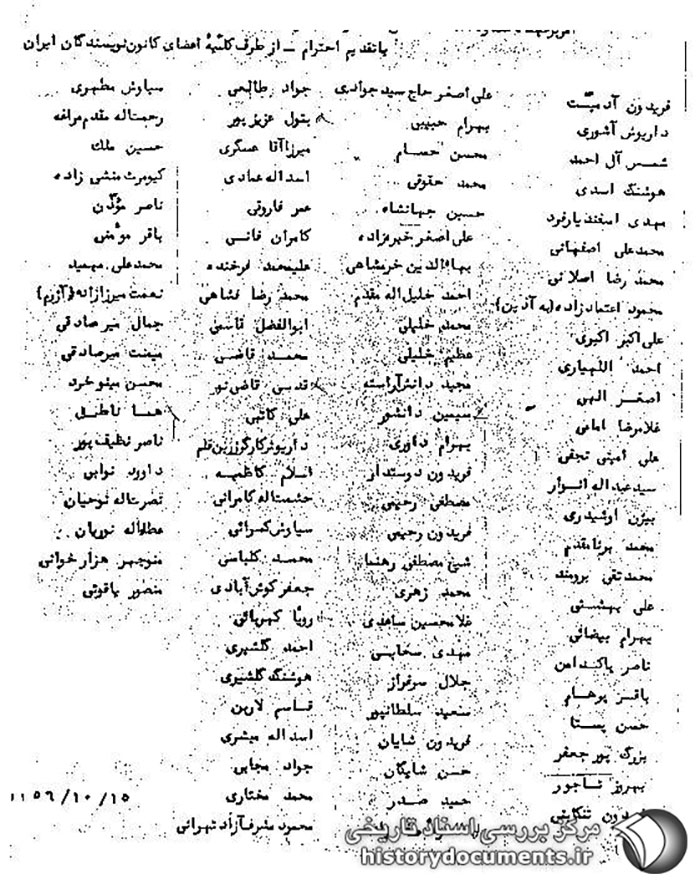 با تقدیم احترام ــ از طرف کلیهٔ اعضای کانون نویسندگان ایران
فریدون آدمیت
داریوش آشوری
شمس آل احمد
هوشنگ اسدی
مهدی اسفندیارفرد
محمدعلی اصفهانی
محمد رضا اصلانی
محمود اعتمادزاده (به آذین)
علی اکبر اکبری
احمد اللهیاری
اصغر الهی
غلامرضا امامی
علی امینی نجفی
سید عبداله انوار
بیژن اوشیدری
محمد برنامقدم
محمدتقی برومند
علی بهشتی
بهرام بیضائی
ناصر پاکدامن
باقر پرهام
حسن پستا
بزرگ پورجعفر
بهروز تاجور
دون تنکابنی
علی اصغر حاج سید جوادی
بهرام حبیبی
محسن حسام
محمد حقوقی
حسین جهانشاه
علی اصغر خبره زاده
بهاءالدین خرمشاهی
احمد خلیل اله مقدم
محمد خلیلی
عظیم خلیلی
مجید دانش آراسته
سیمین دانشور
بهرام داوری
فریدون دوستدار
مصطفی رحیمی
فریدون رحیمی
شیخ مصطفی رهنما
محمد زهری
غلامحسین ساعدی
مهدی سحابی
جلال سرفراز
سعید سلطانپور
فریدون شایان
حسن شایگان
حمید صدر
جواد طالعی
بتول عزیزپور
میرزاآقا عسگری
اسداله عمادی
عمر فاروقی
کامران فانی
علیمحمد فرخنده
محمد رضا فشاهی
ابوالفضل قاسمی
محمد قاضی
قدسی قاضی نور
علی کاتبی
داریوش کارگر زرین قلم
اسلام کاظمیه
حشمت اله کامرانی
سیاوش کسرائی
محمد کلباسی
جعفر کوش آبادی
رویا کهربائی
احمد گلشیری
هوشنگ گلشیری
قاسم لاربن
اسداله مبشری
جواد مجابی
محمد مختاری
محمود مشرف آزاد تهرانی
سیاوش مطهری
رحمت اله مقدم مراغه
حسین ملک
کیومرث منشی زاده
ناصر مؤذن
باقر مؤمنی
محمدعلی مهمید
نعمت میرزازاده (آزرم)
جمال میرصادقی
میمنت میرصادقی
محسن مینوخرد
هما ناطق
ناصر نظیف پور
داود نوابی
نصرت اله نوحیان
عطااله نوریان
منوچهر هزارخوانی
منصور یاقوتی
۱۳۵۶/۱۰/۱۵
مرکز بررسی اسناد تاریخی
historydocuments.ir